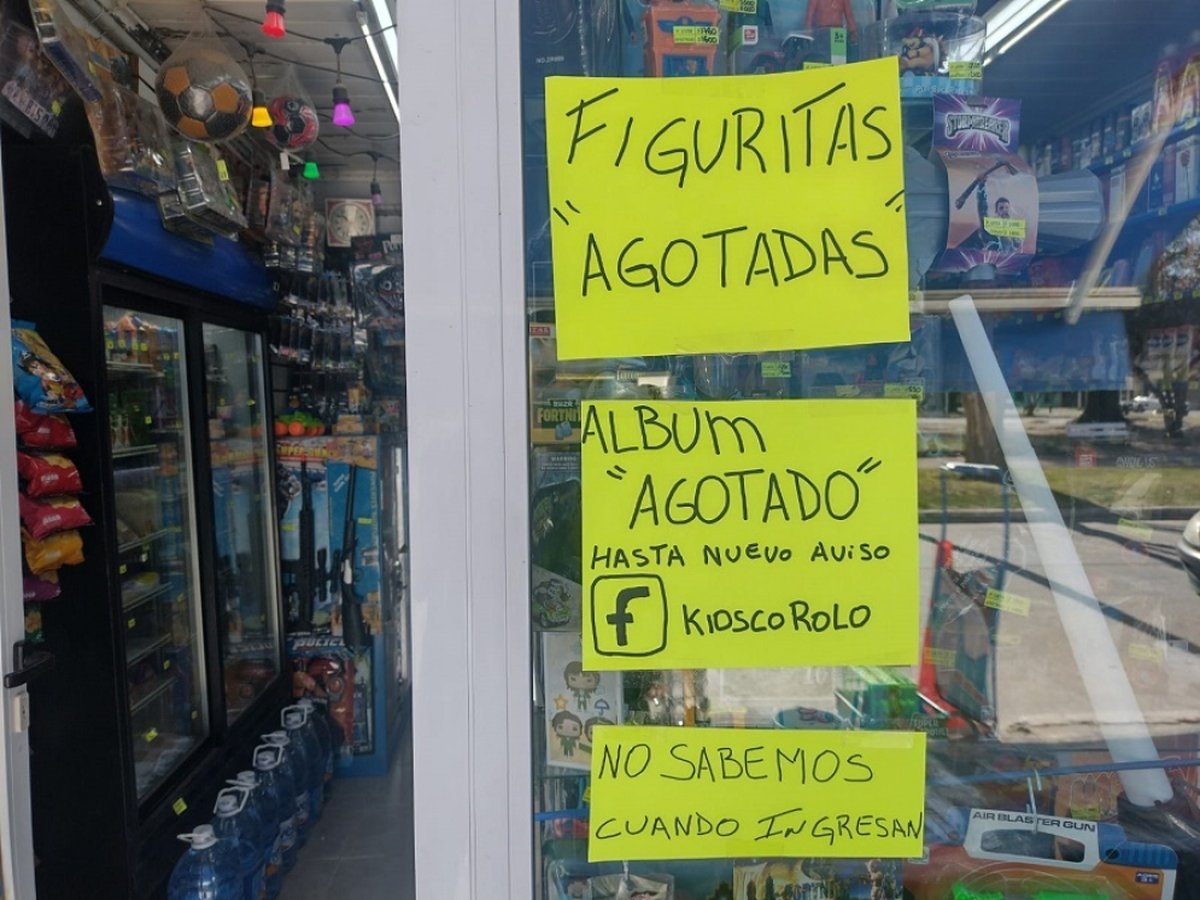 FIGURITAS
"AGOTADAS"
ALBUM
"AGOTADO"
HASTA NUEVO AVISO
f KIOSCO ROLO
NO SABEMOS
CUANDO INGRESAN
STORMBREAKER
FORTNITE
AIR BLASTER GUN